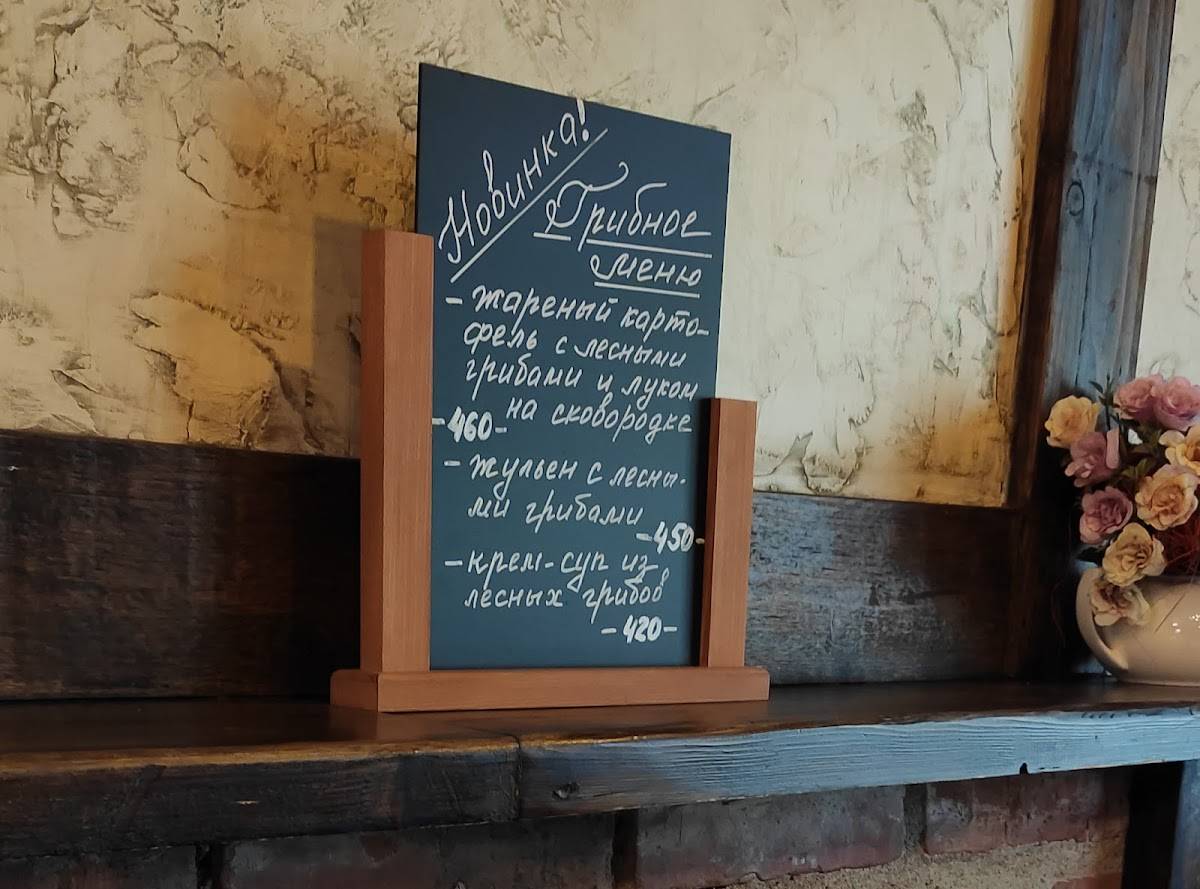 Новинка!
Грибное
меню
- жареный карто-
фель с лесными
грибами и луком
на сковородке
-460-
- жульен с лесны-
ми грибами
-450-
- крем-суп из
лесных грибов
-420-